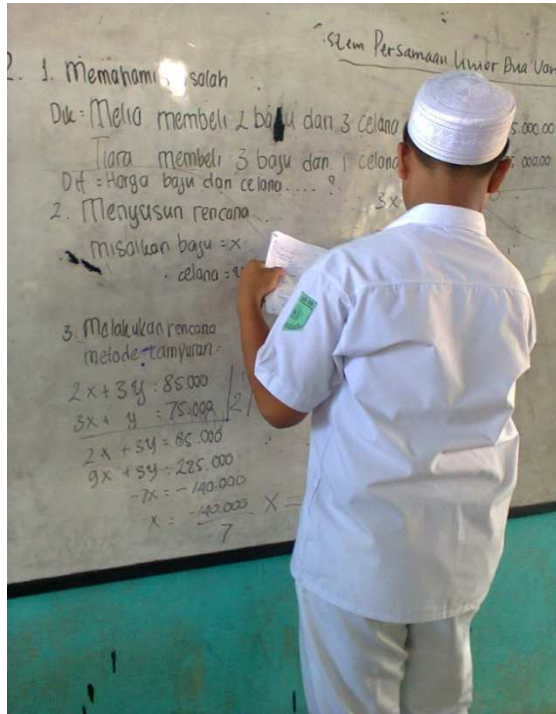 Persamaan Linier Dua Var
2. 1. Memahami salah
Dik: Melia membeli 2 baju dan 3 celana 5.000.00
Tiara membeli 3 baju dan 1 celana 5.000.00
Dit = Harga baju dan celana....?
2. Menyusun rencana
3x
misalkan baju = x
celana =
3. Melakukan rencana
metode campuran:
2x + 3y = 85.000
3x + y = 75.000
2x + 3y = 85.000
9x + 3y = 225.000
-7x = -140.000
x = -140.000 x =
-7